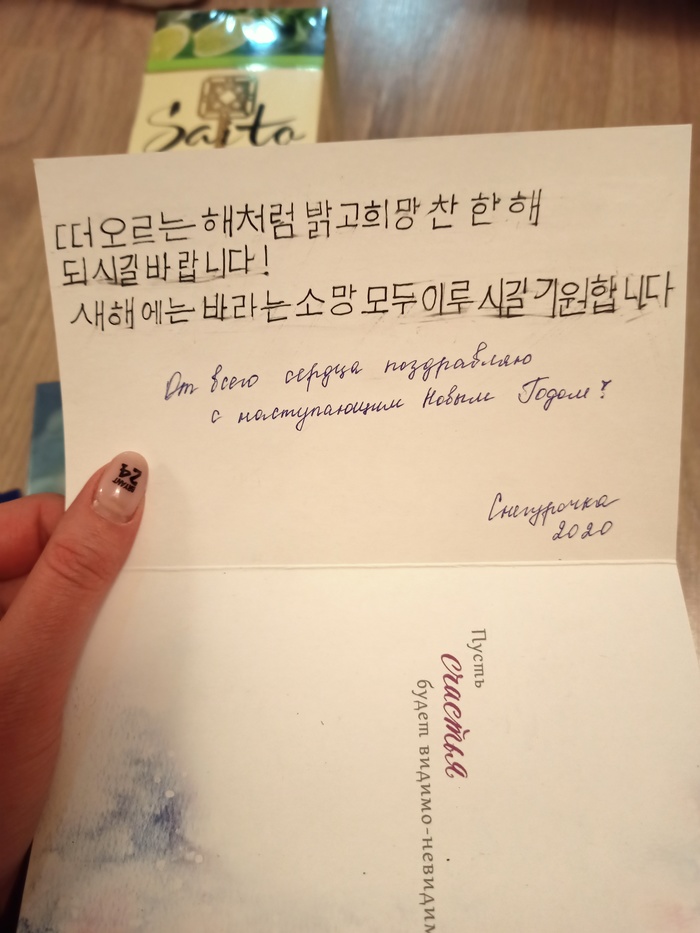 Saito
떠오르는 해처럼 밝고희망 찬 한 해
되시길 바랍니다!
새해에는 바라는 소망 모두 이루시길 기원합니다
От всего сердца поздравляю
с наступающим Новым Годом!
Снегурочка
2020
24
Пусть
счастья
будет видимо-невидим